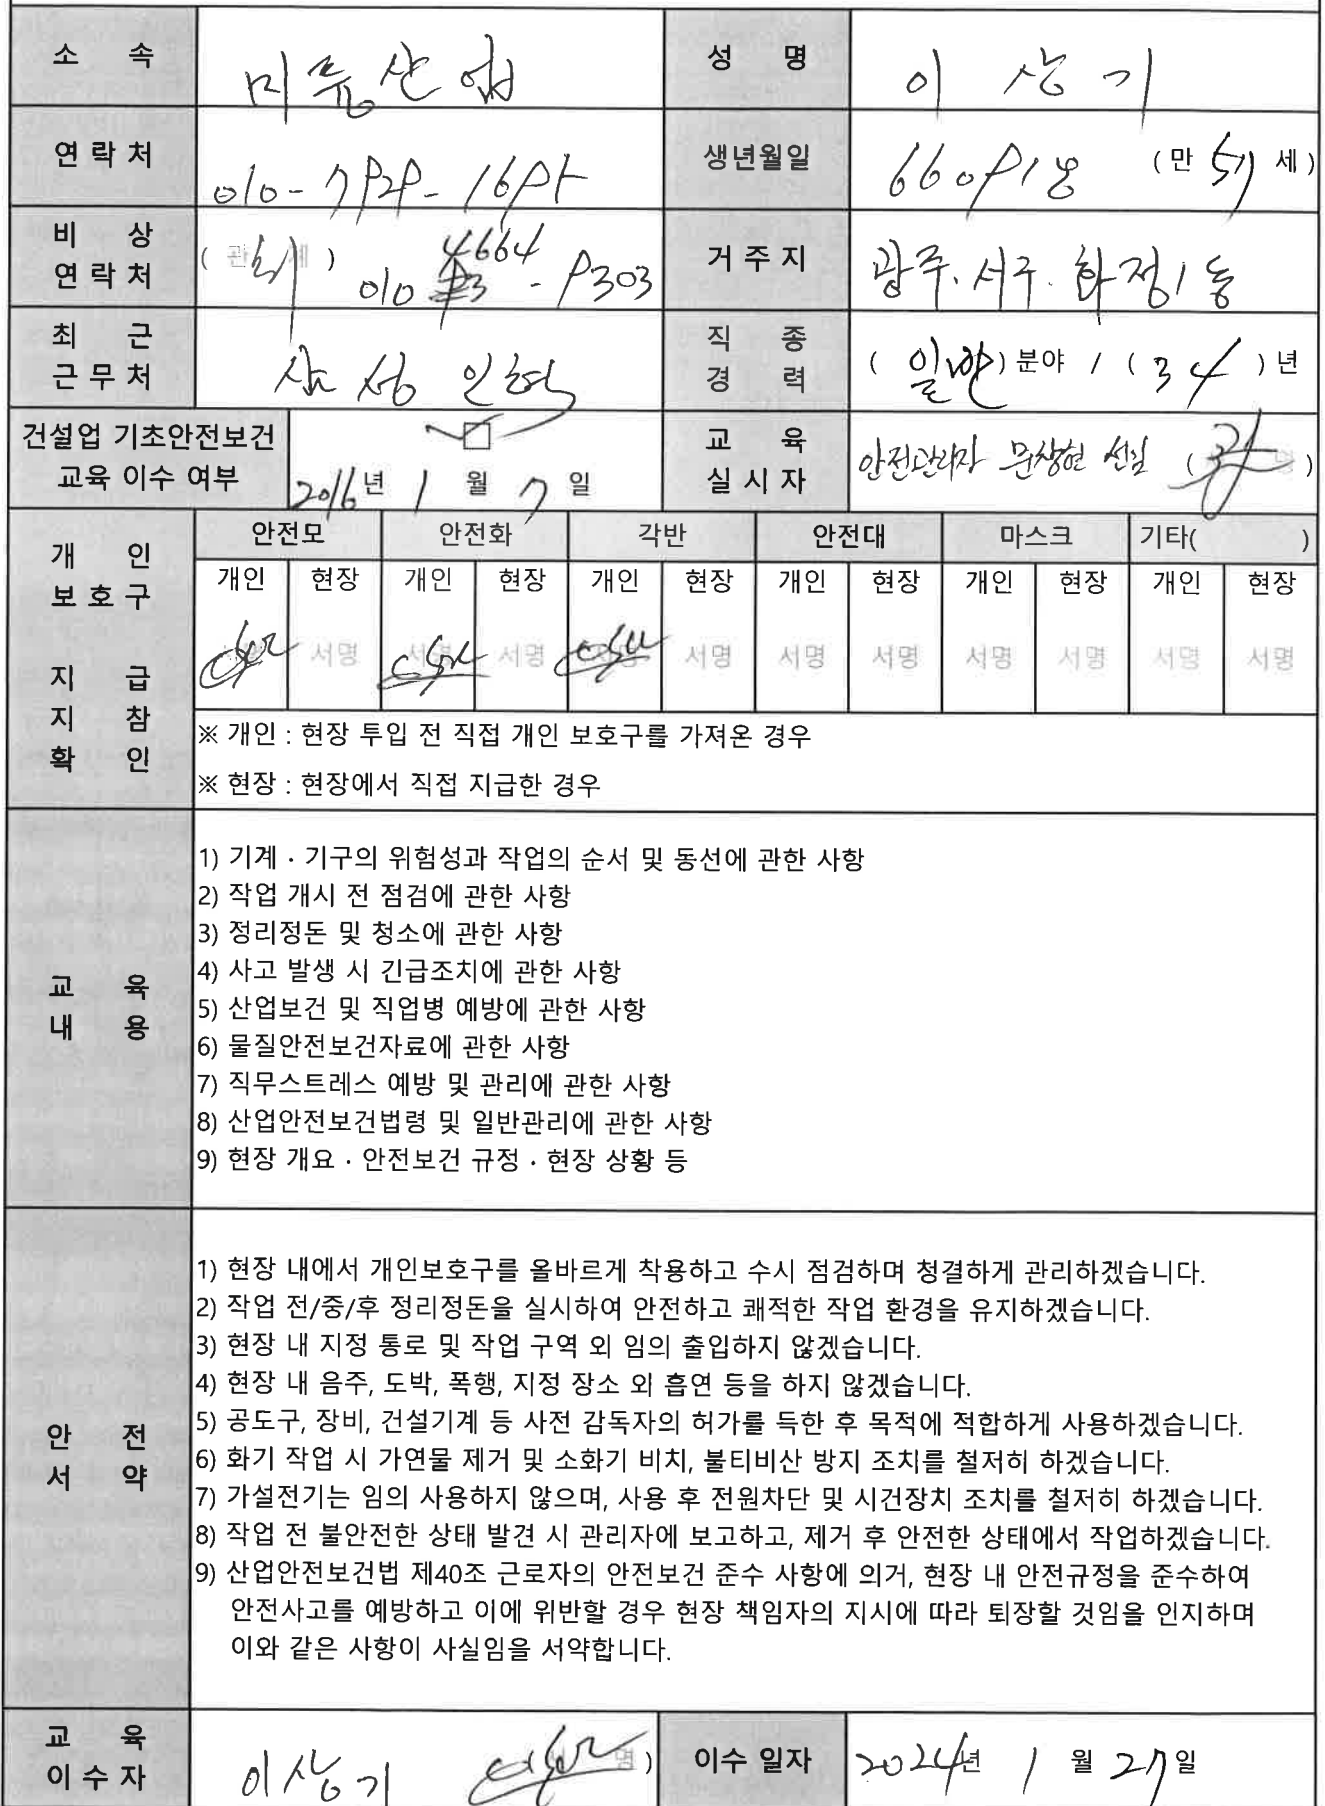 소 속 미륭산업 성 명 이상기
연 락 처 010-7929-1691 생년월일 660918 ( 만 57 세 )
비 상 연 락 처 ( 관계 ) 010 4664 - 9303 거 주 지 광주.서구.화정1동
최 근 근 무 처 삼성인력 직 종 경 력 ( 일반 ) 분야 / ( 34 ) 년
건설업 기초안전보건
교육 이수 여부 □ 2016년 1 월 7 일 교 육 실 시 자 안전관리자 문창현 선임 ( )
개 인 보 호 구 지 급 지 참 확 인
안전모 안전화 각반 안전대 마스크 기타( )
개인 현장 개인 현장 개인 현장 개인 현장 개인 현장 개인 현장
서명 서명 서명 서명 서명 서명 서명 서명 서명 서명 서명
※ 개인 : 현장 투입 전 직접 개인 보호구를 가져온 경우
※ 현장 : 현장에서 직접 지급한 경우
교 육 내 용
1) 기계 · 기구의 위험성과 작업의 순서 및 동선에 관한 사항
2) 작업 개시 전 점검에 관한 사항
3) 정리정돈 및 청소에 관한 사항
4) 사고 발생 시 긴급조치에 관한 사항
5) 산업보건 및 직업병 예방에 관한 사항
6) 물질안전보건자료에 관한 사항
7) 직무스트레스 예방 및 관리에 관한 사항
8) 산업안전보건법령 및 일반관리에 관한 사항
9) 현장 개요 · 안전보건 규정 · 현장 상황 등
안 전 서 약
1) 현장 내에서 개인보호구를 올바르게 착용하고 수시 점검하며 청결하게 관리하겠습니다.
2) 작업 전/중/후 정리정돈을 실시하여 안전하고 쾌적한 작업 환경을 유지하겠습니다.
3) 현장 내 지정 통로 및 작업 구역 외 임의 출입하지 않겠습니다.
4) 현장 내 음주, 도박, 폭행, 지정 장소 외 흡연 등을 하지 않겠습니다.
5) 공도구, 장비, 건설기계 등 사전 감독자의 허가를 득한 후 목적에 적합하게 사용하겠습니다.
6) 화기 작업 시 가연물 제거 및 소화기 비치, 불티비산 방지 조치를 철저히 하겠습니다.
7) 가설전기는 임의 사용하지 않으며, 사용 후 전원차단 및 시건장치 조치를 철저히 하겠습니다.
8) 작업 전 불안전한 상태 발견 시 관리자에 보고하고, 제거 후 안전한 상태에서 작업하겠습니다.
9) 산업안전보건법 제40조 근로자의 안전보건 준수 사항에 의거, 현장 내 안전규정을 준수하여
안전사고를 예방하고 이에 위반할 경우 현장 책임자의 지시에 따라 퇴장할 것임을 인지하며
이와 같은 사항이 사실임을 서약합니다.
교 육 이 수 자 이상기 명 ) 이수 일자 2024년 1 월 27일